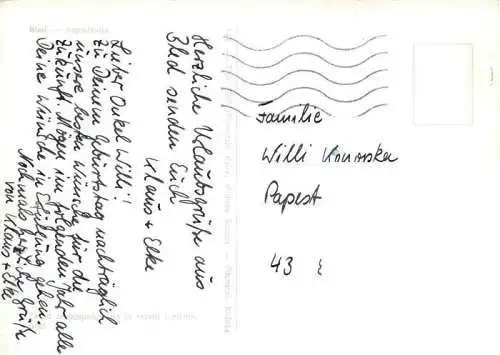 Herzliche Urlaubsgrüße aus
Bled senden Euch
Klaus + Elke
Lieber Onkel Willi!
Zu Deinem Geburtstag nachträglich
unsere besten Wünsche für die
Zukunft. Mögen im folgenden Jahr alle
Deine Wünsche in Erfüllung gehen.
Nochmals herzliche Grüße
von Klaus + Elke
Familie
Willi
Papest
43
Bled